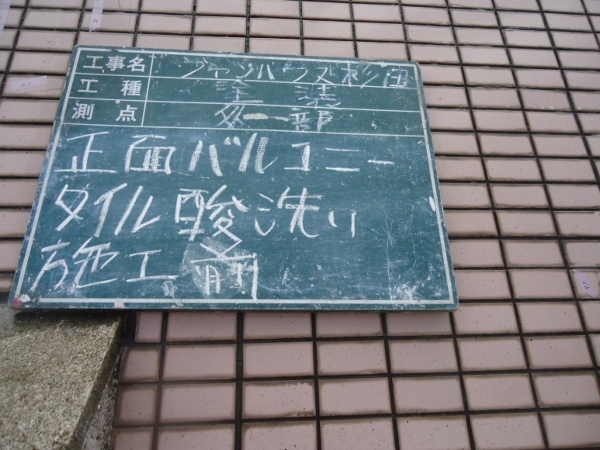 工事名 ジャンハウス杉田
工種 塗装
測点 外部
正面バルコニー
タイル酸洗い
施工前